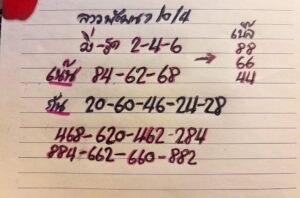 ลาวพัฒนา 10/4
วิ่ง-รูด 2-4-6 → เบิ้ล
88
66
44
เน้น 84-62-68
กัน 20-60-46-24-28
468-620-462-284
884-662-660-882